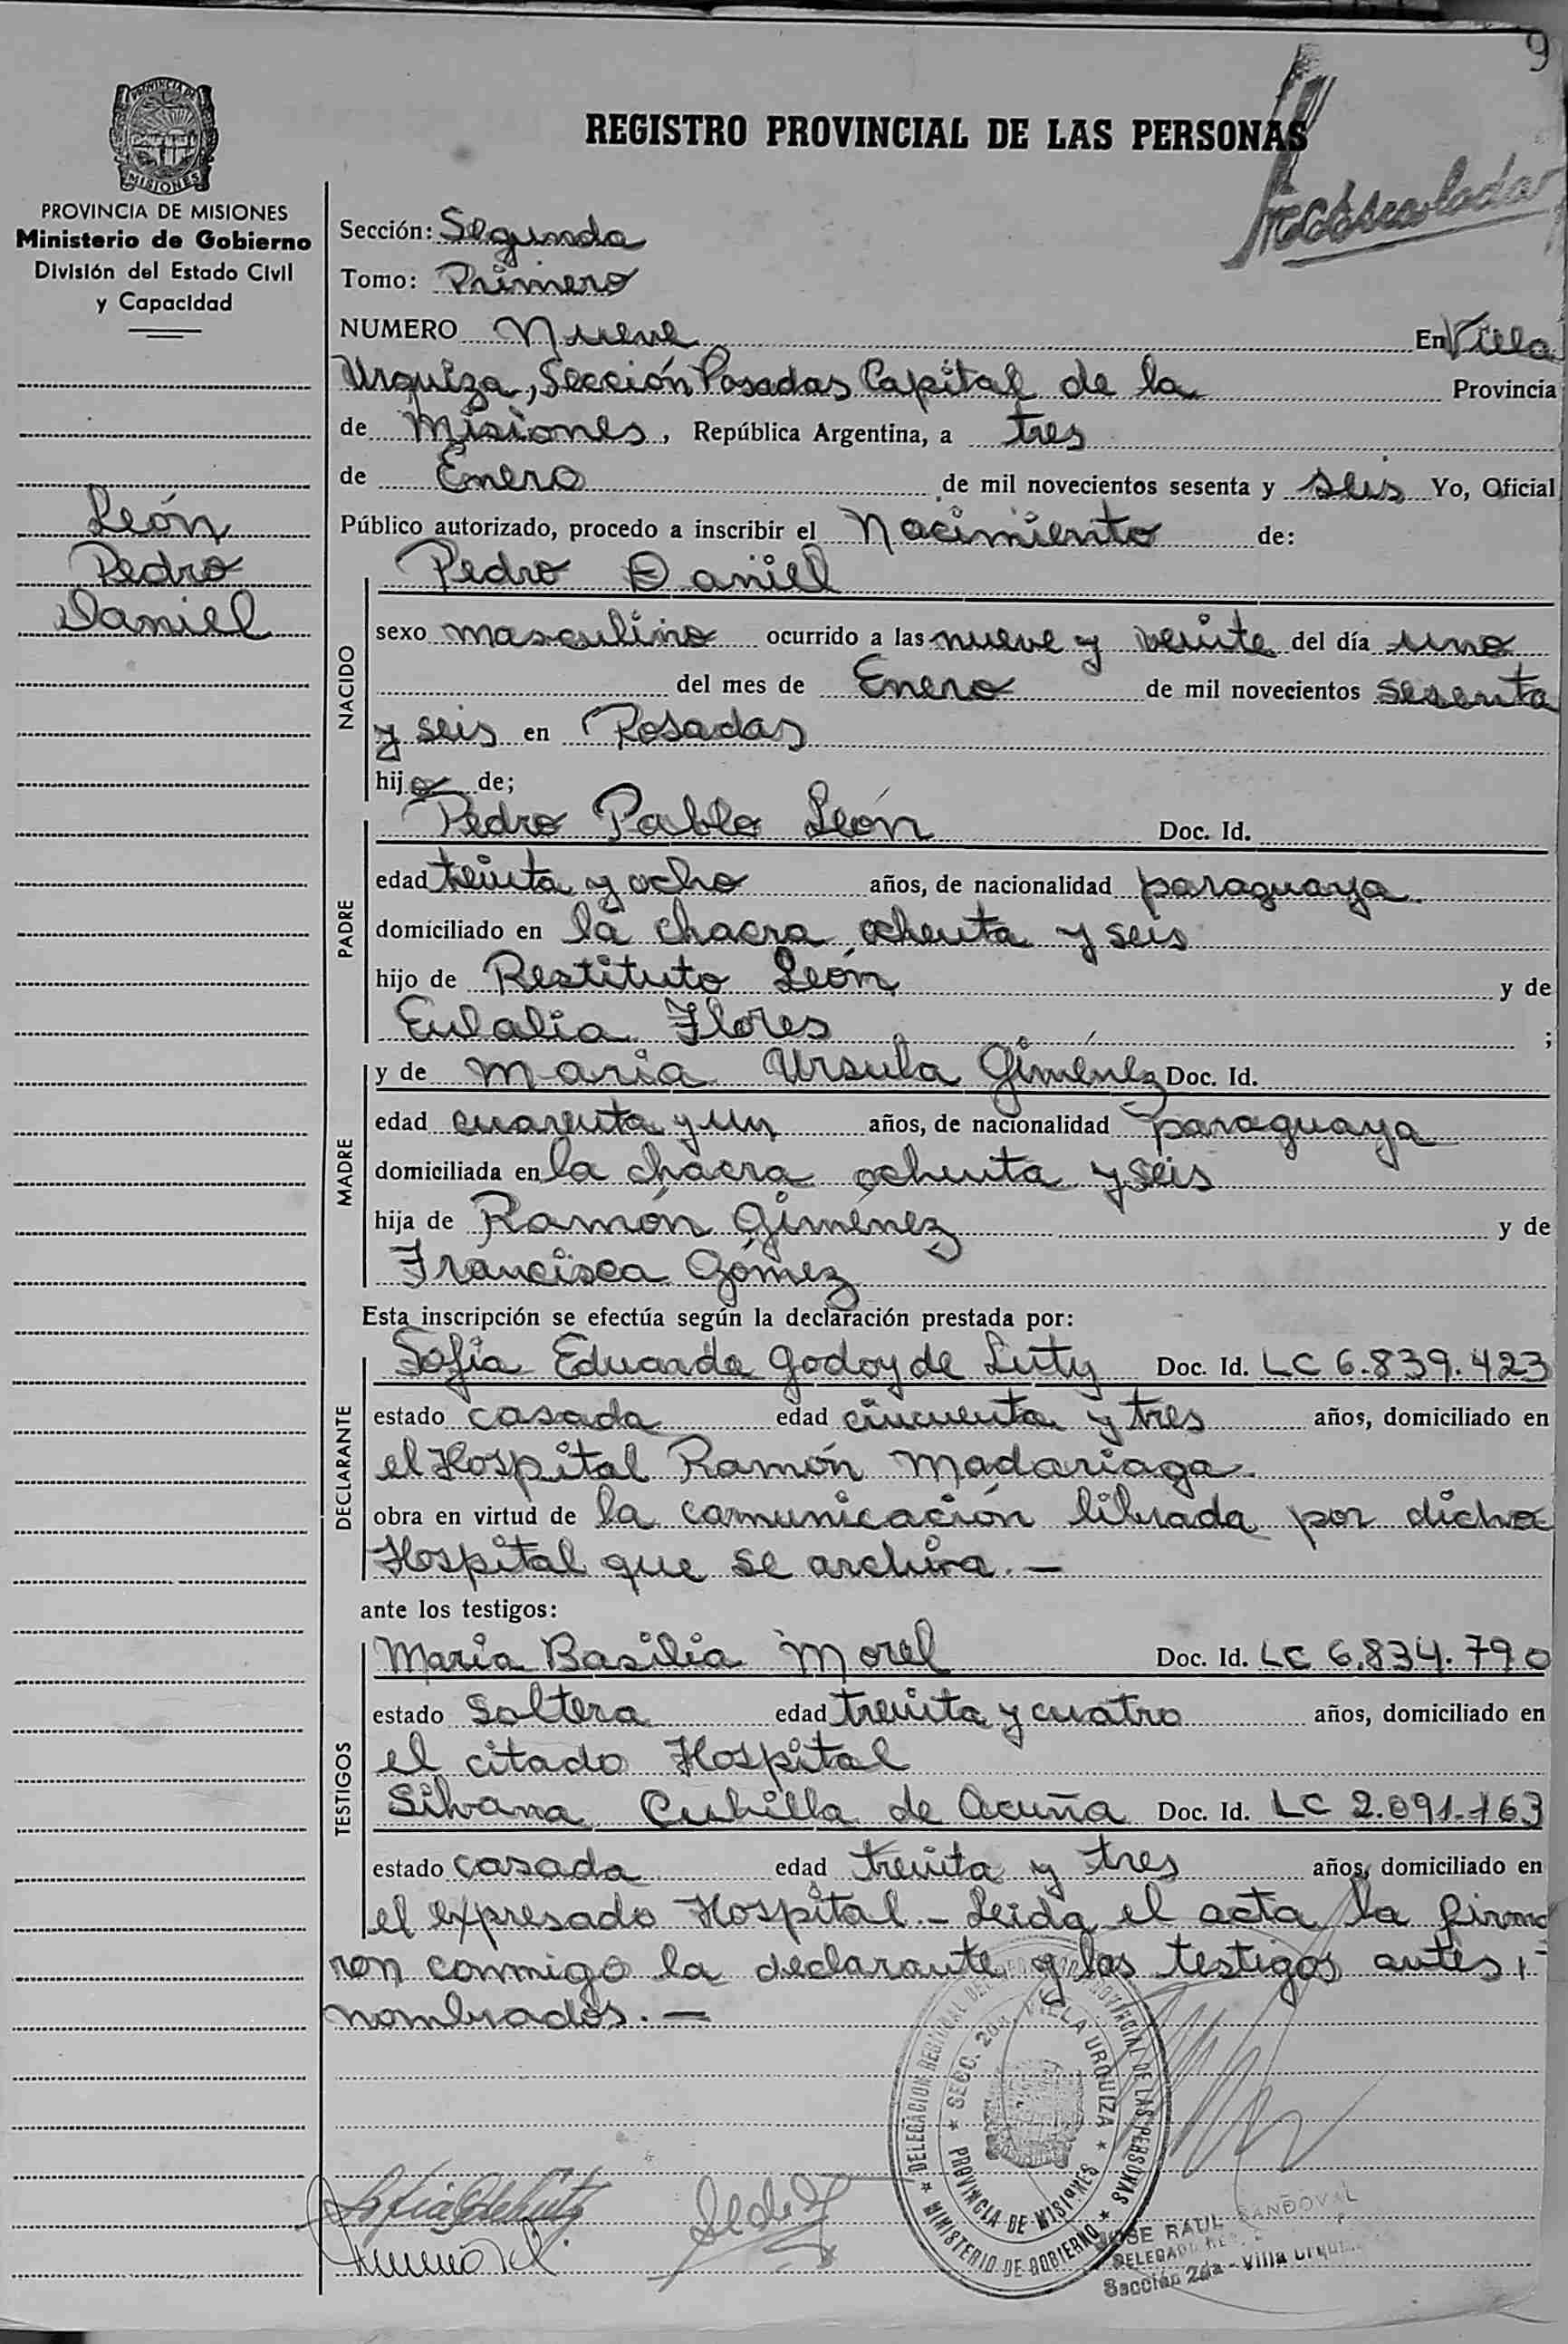 9
PROVINCIA DE
MISIONES
PROVINCIA DE MISIONES
Ministerio de Gobierno
División del Estado Civil
y Capacidad
León
Pedro
Daniel
REGISTRO PROVINCIAL DE LAS PERSONAS
Sección: Segunda
Tomo: Primero
NUMERO Nueve En Villa
Urquiza, Sección Posadas Capital de la Provincia
de Misiones, República Argentina, a tres
de Enero de mil novecientos sesenta y seis Yo, Oficial
Público autorizado, procedo a inscribir el Nacimiento de:
NACIDO
Pedro Daniel
sexo masculino ocurrido a las nueve y veinte del día uno
del mes de Enero de mil novecientos sesenta
y seis en Posadas
hijo de;
PADRE
Pedro Pablo León Doc. Id.
edad treinta y ocho años, de nacionalidad paraguaya
domiciliado en la chacra ochenta y seis
hijo de Restituto León y de
Eulalia Flores ;
MADRE
y de María Ursula Giménez Doc. Id.
edad cuarenta y un años, de nacionalidad paraguaya
domiciliada en la chacra ochenta y seis
hija de Ramón Giménez y de
Francisca Gómez
Esta inscripción se efectúa según la declaración prestada por:
DECLARANTE
Sofia Eduarda Godoy de Luty Doc. Id. LC 6.839.423
estado casada edad cincuenta y tres años, domiciliado en
el Hospital Ramón Madariaga
obra en virtud de la comunicación librada por dicho
Hospital que se archiva. —
ante los testigos:
TESTIGOS
María Basilia Morel Doc. Id. LC 6.834.790
estado soltera edad treinta y cuatro años, domiciliado en
el citado Hospital
Silvana Cubilla de Acuña Doc. Id. LC 2.091.163
estado casada edad treinta y tres años, domiciliado en
el expresado Hospital. - Leida el acta la firma
ron conmigo la declarante y los testigos antes
nombrados. —
DELEGACION REGIONAL DEL REGISTRO PROVINCIAL DE LAS PERSONAS
SECC. 2da. VILLA URQUIZA
PROVINCIA DE MISIONES
MINISTERIO DE GOBIERNO
JOSE RAUL SANDOVAL
Sección 2da - Villa